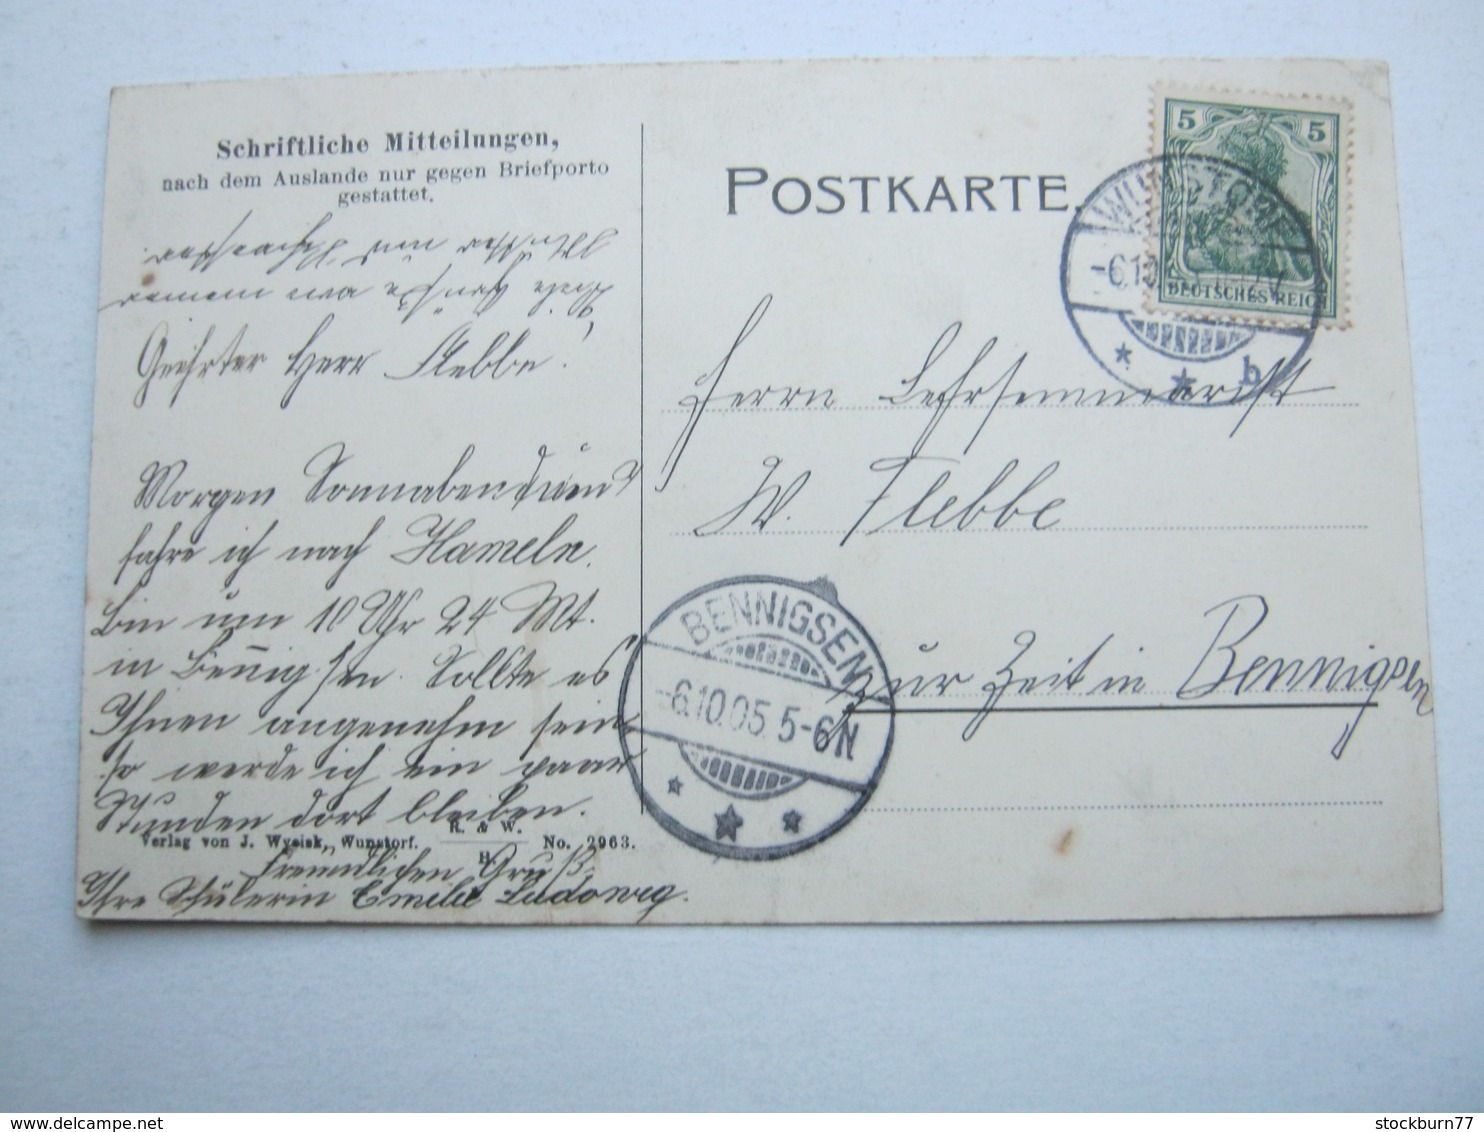 Schriftliche Mitteilungen,
nach dem Auslande nur gegen Briefporto
gestattet.
POSTKARTE.
5 5
DEUTSCHES REICH
WUNSTORF
-6.10.
* * b
Geehrter Herr Flebbe!
Morgen Sonnabend
fahre ich nach Hameln.
Bin um 10 Uhr 24 Mt.
in Bennigsen. Sollte es
Ihnen angenehm sein
so werde ich ein paar
Stunden dort bleiben.
Verlag von J. Wysisk, Wunstorf. R. & W. H. No. 2963.
Freundlichen Gruß
Ihre Schülerin Emilie Ladoweg.
Herrn Lehrseminarist
W. Flebbe
zur Zeit in Bennigsen
BENNIGSEN
-6.10.05.5-6N
* * *
stockburn77